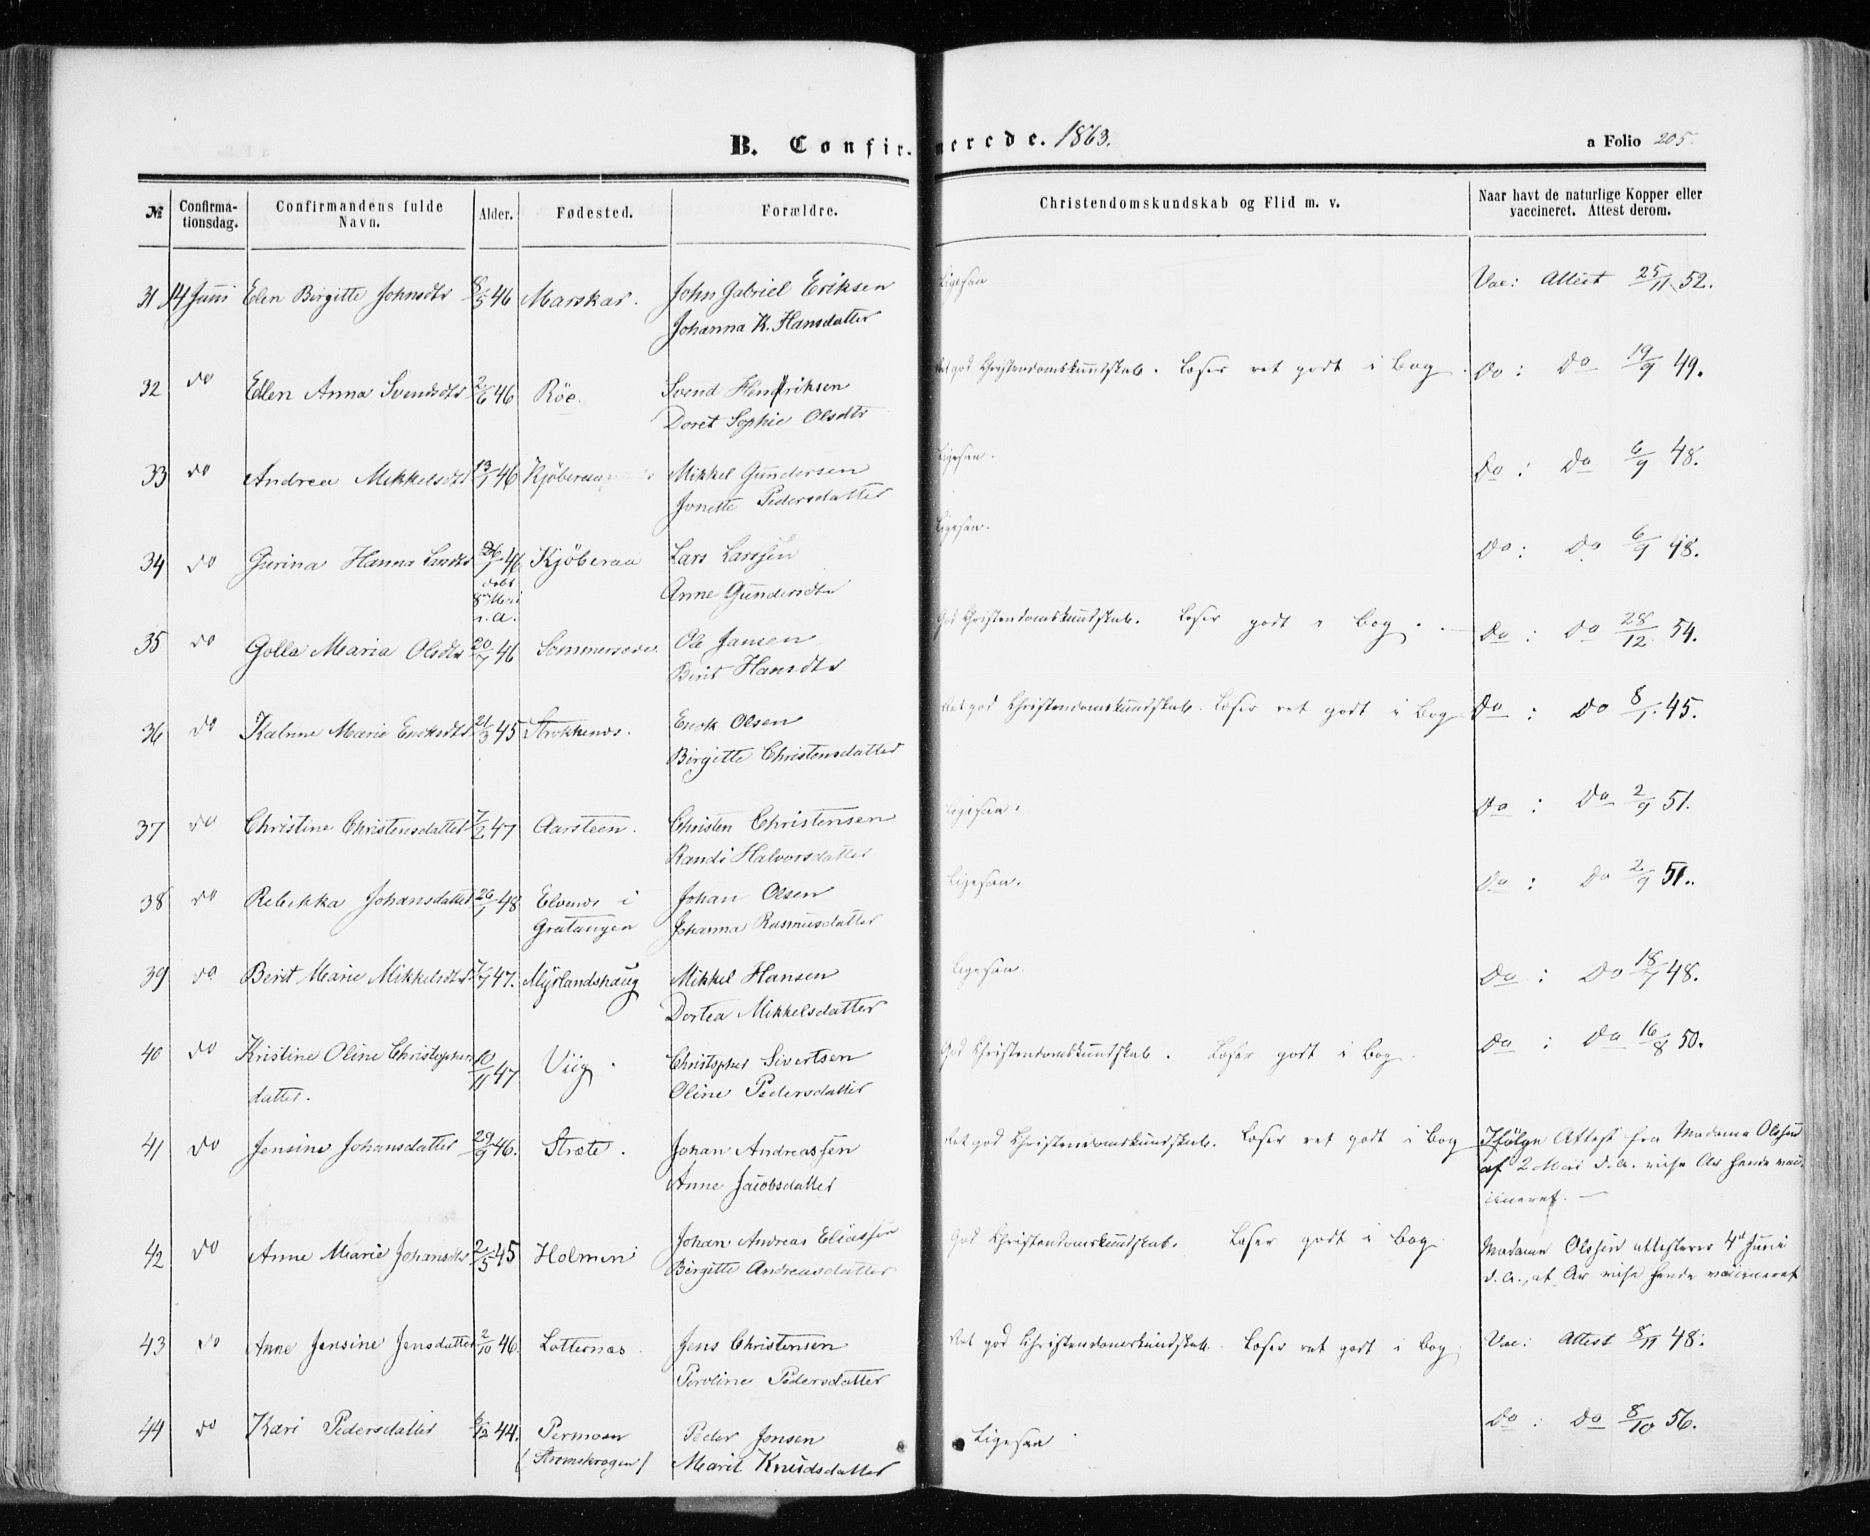 B. Confirmerede. 1863.
a Folio 205
№
Confirmationsdag.
Confirmandens fulde Navn.
Alder.
Fødested.
Forældre.
Christendomskundskab og Flid m. v.
Naar havt de naturlige Kopper eller vaccineret. Attest derom.
31 14 Juni Elen Birgitte Johnsdtr 8/5 46 Marskar. John Gabriel Eriksen Ligesaa Vac: Attest 25/11 52.
Johanna K. Hansdatter
32 do Ellen Anna Svendsdtr 2/6 46 Röe. Svend Hendriksen Ret god Christendomskundskab. Læser ret godt i Bog. Do: Do 19/9 49.
Doret Sophie Olsdtr
33 do Andrea Mikkelsdtr 13/1 46 Mikkel Gundersen Ligesaa. Do: Do 6/9 48.
Jonette Pedersdatter
34 do Gurina Hanna Larsdtr 26/1 46 Kjöberaa Lars Larssen Ligesaa. Do: Do 6/9 48.
døbt
8de Mai
s. A.
Anne Gundersdtr
35 do Golla Maria Olsdtr 20/7 46 Ole Jansen God Christendomskundskab. Læser godt i Bog. Do: Do 28/12 54.
Berit Hansdtr
36 do Katrine Marie Ericksdtr 21/3 45 Strokkenæs. Erick Olsen Ret god Christendomskundskab. Læser ret godt i Bog Do: Do 8/1 45.
Birgitte Christensdatter
37 do Christine Christensdatter 7/2 47 Aarsteen. Christen Christensen Ligesaa. Do: Do 2/9 51.
Randi Halvorsdatter
38 do Rebekka Johansdatter 26/1 48 Elvenæs i Johan Olsen Ligesaa. Do: Do 2/9 51.
Gratangen Johanna Rasmusdatter
39 do Berit Marie Mikkelsdtr 7/7 47. Myrlandshaug Mikkel Hansen Ligesaa. Do: Do 18/7 48.
Dortea Mikkelsdatter
40 do Kristine Oline Christopher 10/11 47 Viig. Christopher Sivertsen God Christendomskundskab. Læser godt i Bog. Do: Do 16/8 50.
datter. Oline Pedersdatter
41 do Jensine Johansdatter 29/9 46. Stræte. Johan Andreassen Ret god Christendomskundskab. Læser ret godt i Bog Ifölge Attest fra Madame Olssen
Anne Jacobsdatter af 2 Mai d. A. vise Ar hende vac
cineret. —
42 do Anne Marie Johansdtr 2/5 45 Holmen Johan Andreas Eliassen God Christendomskundskab. Læser godt i Bog Madame Olssen attesterer 4de Junii
Birgitte Andreasdatter d. A., at Ar vise hende vaccineret
43 do Anne Jensine Jensdatter 2/10 46. Lotternæs. Jens Christensen Ret god Christendomskundskab. Læser ret godt i Bog. Vac: Attest 8/11 48:
Peroline Pedersdatter
44 do Kari Pedersdatter 6/12 44. Permoen Peder Jensen Ligesaa Do: Do 8/10 56.
(Strømskrogen) Marit Knudsdatter